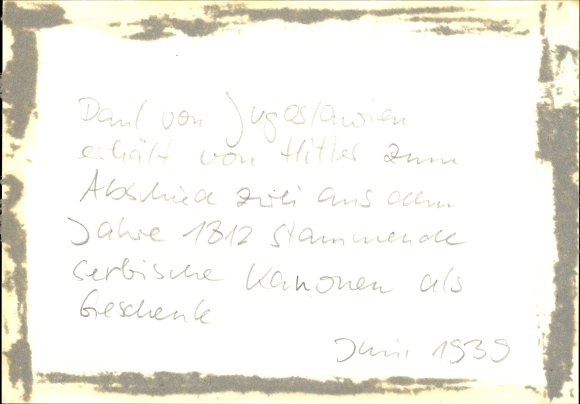 Paul von Jugoslawien
erhält von Hitler zum
Abschied zwei aus dem
Jahre 1812 stammende
serbische Kanonen als
Geschenk
Juni 1939